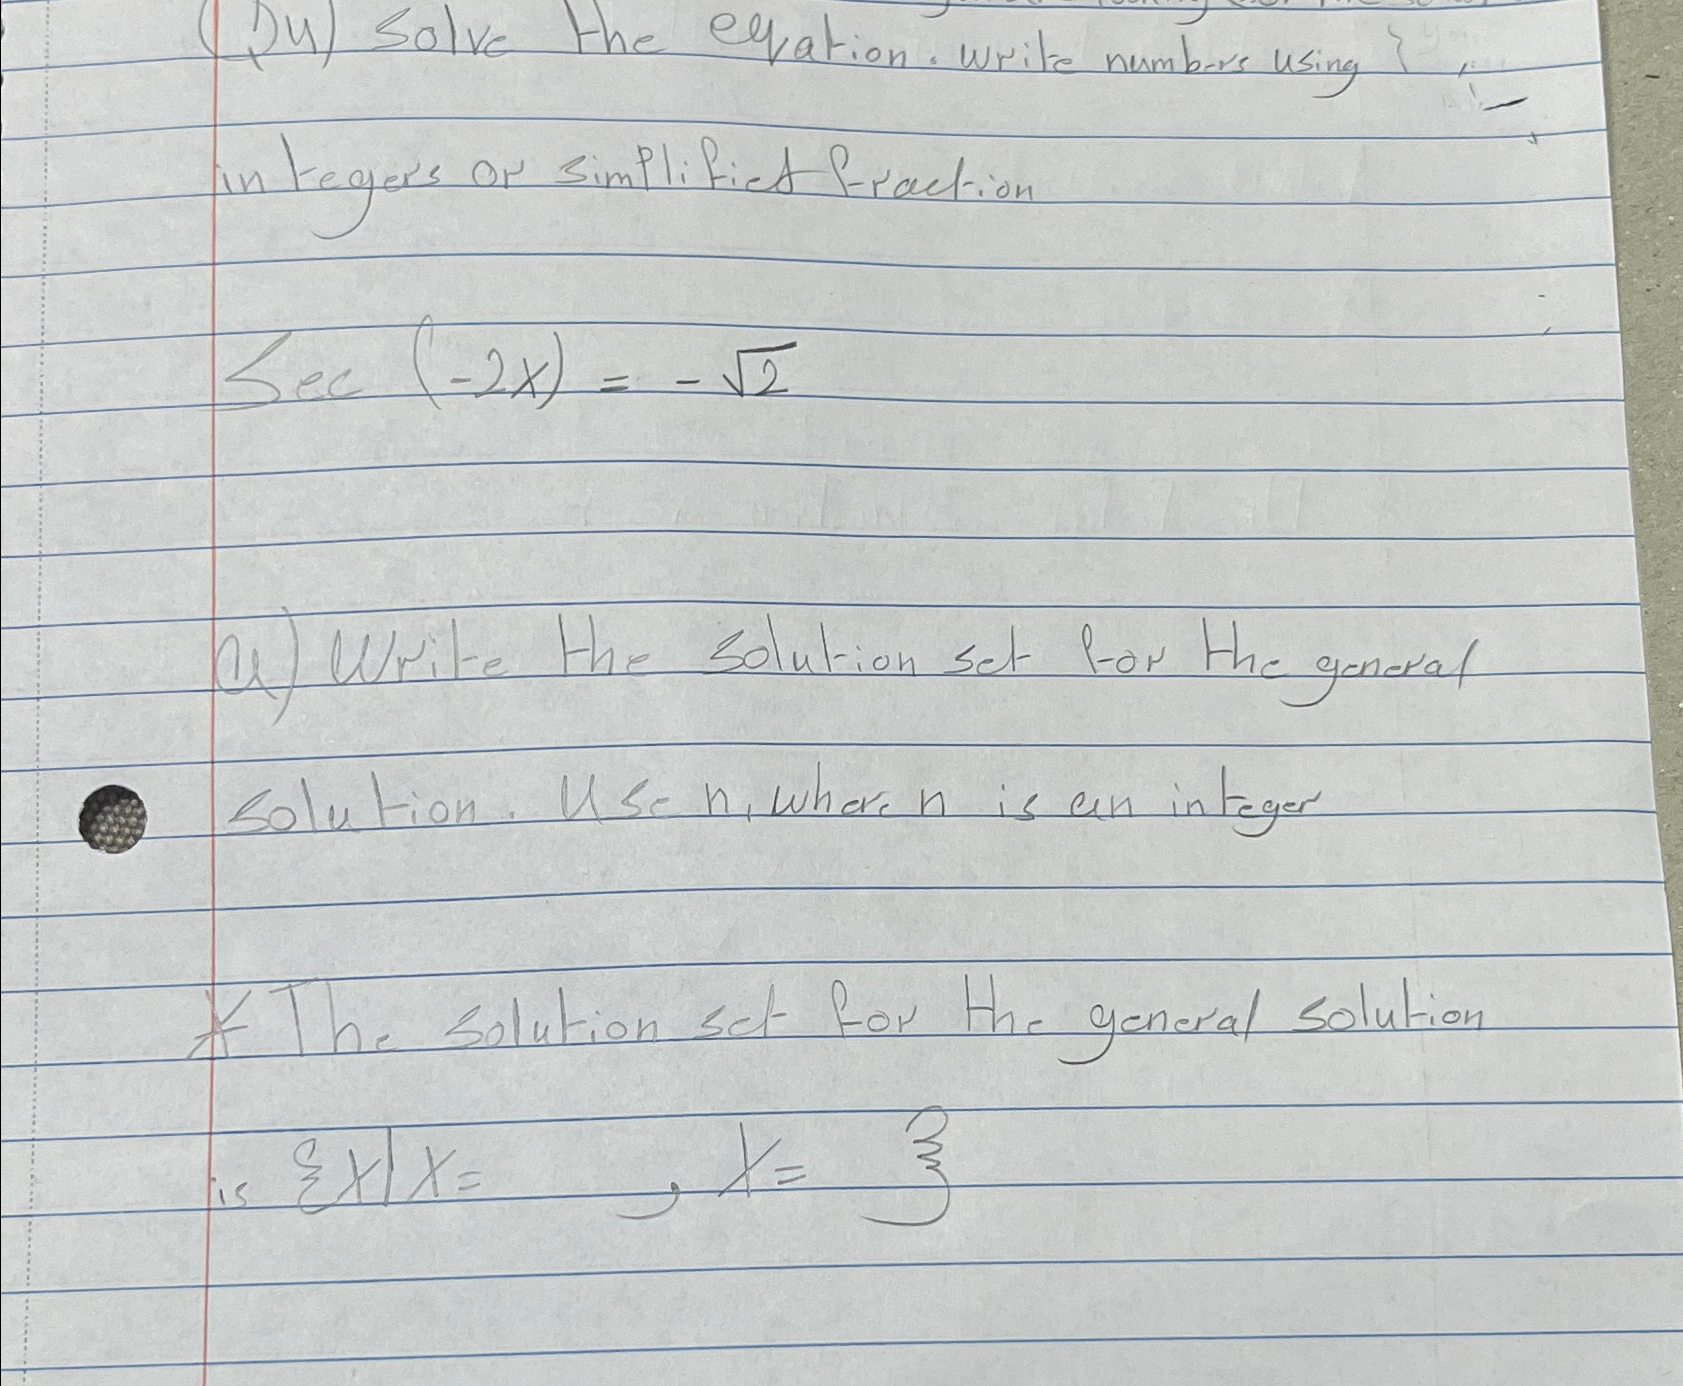 Solve the equation. Write numbers using
integers or simplified fraction
Sec (-2x) = -√2
a) Write the solution set for the general
solution. Use n, where n is an integer
* The solution set for the general solution
is {x|x= , x= }